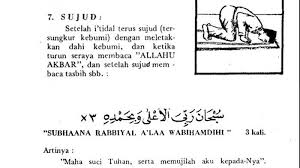 7. SUJUD :
Setelah i'tidal terus sujud (ter-
sungkur kebumi) dengan meletak-
kan dahi kebumi, dan ketika
turun seraya membaca "ALLAHU
AKBAR", dan setelah sujud mem -
baca tasbih sbb. :
سُبْحَانَ رَبِّيَ الْأَعْلَى وَبِحَمْدِهِ ×٣
"SUBHAANA RABBIYAL A'LAA WABIHAMDIHI" 3 kali.
Artinya :
"Maha suci Tuhan, serta memujilah aku kepada-Nya"